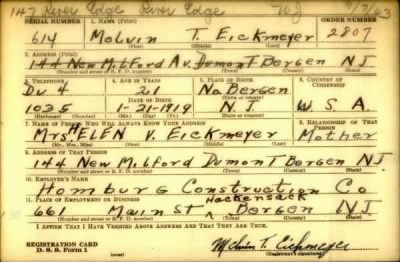 147 River Edge River Edge NJ
SERIAL NUMBER 1. NAME (Print) ORDER NUMBER
614 Melvin T. Eickmeyer 2807
(First) (Middle) (Last)
2. ADDRESS (Print)
144 New Milford Av. Dumont Bergen NJ
(Number and street or R. F. D. number) (Town) (County) (State)
3. TELEPHONE 4. AGE IN YEARS 5. PLACE OF BIRTH 6. COUNTRY OF CITIZENSHIP
Du 4 21 No Bergen
DATE OF BIRTH (Town or county)
1035 1-21-1919 N.J. U.S.A.
(Exchange) (Number) (Mo.) (Day) (Yr.) (State or country)
7. NAME OF PERSON WHO WILL ALWAYS KNOW YOUR ADDRESS 8. RELATIONSHIP OF THAT PERSON
Mrs HELEN V. Eickmeyer Mother
(Mr., Mrs., Miss) (First) (Middle) (Last)
9. ADDRESS OF THAT PERSON
144 New Milford Dumont Bergen NJ
(Number and street or R. F. D. number) (Town) (County) (State)
10. EMPLOYER'S NAME
Homburg Construction Co
11. PLACE OF EMPLOYMENT OR BUSINESS
Hackensack
661 Main St Bergen NJ
(Number and street or R. F. D. number) (Town) (County) (State)
I AFFIRM THAT I HAVE VERIFIED ABOVE ANSWERS AND THAT THEY ARE TRUE.
REGISTRATION CARD
D. S. S. Form 1
Melvin T. Eickmeyer
(Registrant's signature)